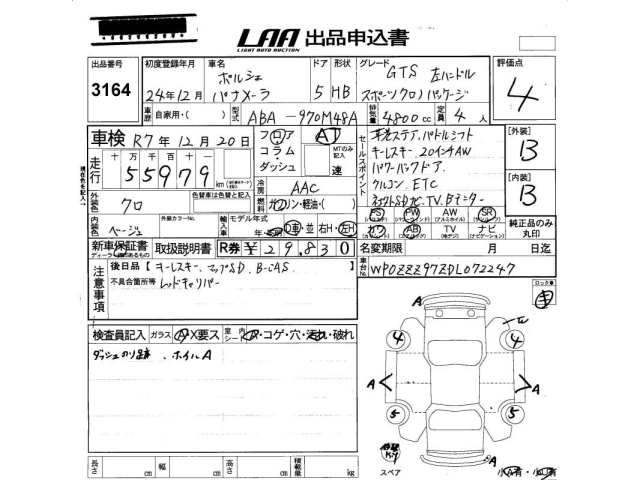 LAA 出品申込書
LIGHT AUTO AUCTION
出品番号 初度登録年月 車名 ドア 形状 グレード 評価点
3164 24年12月 ポルシェ パナメーラ 5 HB GTS 左ハンドル スポーツクロノパッケージ 4
車歴 自家用・( ) 型式 ABA-970M48A 排気量 4800cc 定員 4人
車検 R7年12月20日 フロア コラム・ダッシュ AT MTのみ記入 速
セールスポイント 革 ステア.パドルシフト
キーレスキー 20インチAW
パワーバックドア
クルコン ETC
TV Bモニター
[外装] B
[内装] B
走行 十万 万 千 百 十 一
55979 km
冷房 AAC
外装色 クロ 色替車は色替と記入
燃料 ガソリン・軽油・( )
内装色 ベージュ 外装カラーNo. 輸入車 モデル年式 年 D車・並 右H・左H
PS PW AW SR
カワ AB TV ナビ
純正品のみ丸印
新車保証書 取扱説明書 R券 ¥29,830
名変期限 月 日迄
注意事項 後日品【キーレスキー、マップSD、B-CAS
不具合箇所等 レッドキャリパー
車台No. WP0ZZZ97ZDL072247
検査員記入 ガラス A・X要ス 室内シート ・コゲ・穴・汚れ・破れ
ダッシュのり跡 ホイルA
A
4 4
A A
5 5
A
スペア
長さ cm 幅 cm 高さ cm 積載量 kg